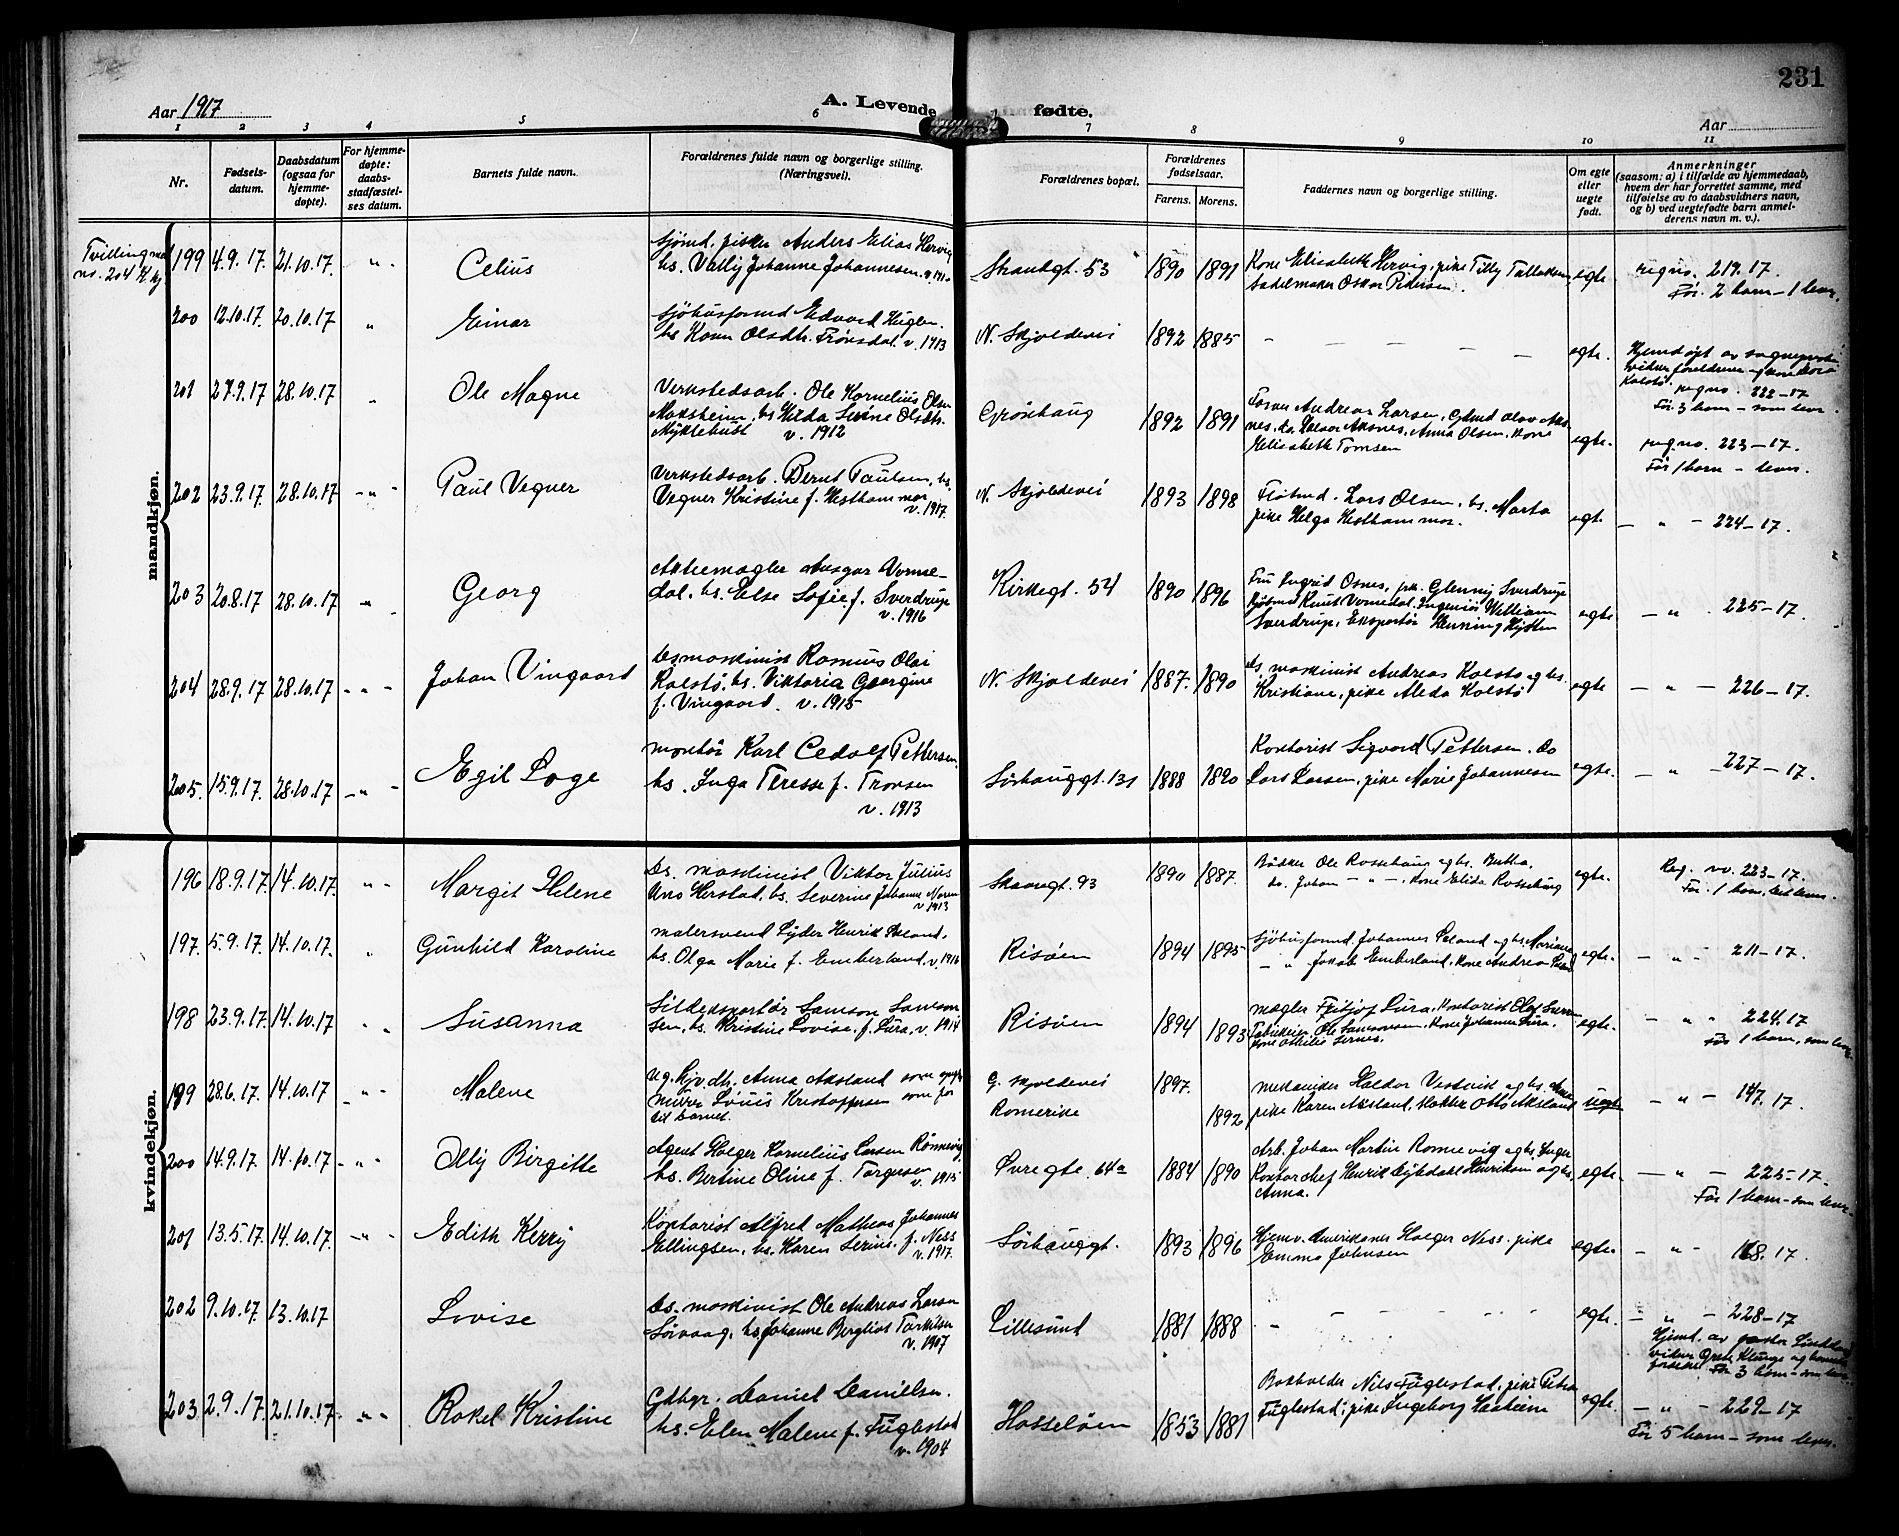 231
Aar 1917
A. Levende fødte.
Aar
1 2 3 4 5 6 7 8 9 10 11
Nr.
Fødsels-
datum.
Daabsdatum
(ogsaa for
hjemme-
døpte).
For hjemme-
døpte:
daabs-
stadfæstel-
ses datum.
Barnets fulde navn.
Forældrenes fulde navn og borgerlige stilling.
(Næringsvei).
Forældrenes bopæl.
Forældrenes
fødselsaar.
Farens. Morens.
Faddernes navn og borgerlige stilling.
Om egte
eller
uegte
født.
Anmerkninger
(saasom: a) i tilfælde av hjemmedaab,
hvem der har forrettet samme, med
tilføielse av to daabsvidners navn,
og b) ved uegtefødte barn anmel-
derens navn m. v.).
mandkjøn.
Tvilling m
no. 204
199 4.9.17. 21.10.17. " Celius
Sjømd. fisker Anders Elias Hervig
hs. Vally Johanne Johannesen
Strandgt. 53 1890 1891
Kone Elisabeth Hervig, pike Tilly
Sadelmaker Oskar Pedersen.
egte. reg no. 219.17.
Før. 2 barn – 1 lever.
200 12.10.17. 20.10.17 " Einar
Sjøhusformd Edvard
hs Olsdtr. v. 1913
N. Skjoldevei 1892 1885 – – – – –
egte. Hjemdøpt av sogneprest
reg no. 222–17
Før 3 barn – som lever.
201 27.9.17 28.10.17 " Ole Magne
Verkstedsarb. Ole Kornelius Olsen
hs Hilda Olsdtr.
Myklebust v. 1912
Grønhaug 1892 1891
Andreas Larsen,
Anna Olsen, kone
Elisabeth Tomsen
egte. reg no. 223–17.
Før 1 barn – lever.
202 23.9.17 28.10.17 – " – Paul Vegner
Verkstedsarb. Bernt Paulsen, hs.
Vegner Kristine f. Vesthammer
v. 1917.
N. Skjoldevei 1893 1898
Lars Olsen, hs. Marta
pike Helga Vesthammer.
egte – " – 224–17.
203 20.8.17 28.10.17 " Georg
Aktiemægler Ansgar Vormedal,
hs. Else Sofie f. Sverdrup
v. 1916
Kirkegt. 54 1890 1896
Fru Ingrid Osnes, frk. Sverdrup
Knut Vormedal, Ingeniør William
Sverdrup, Eksportør Henning
egte – " – 225–17.
204 28.9.17 28.10.17 – " – Johan Vingaard
bs maskinist Rasmus Olai
Kolstø, hs. Viktoria Georgine
f. Vingaard. v. 1915
N. Skjoldevei 1887. 1890
ds. maskinist Andreas Kolstø og hs.
Kristiane, pike Alida Kolstø
egte – " – 226–17.
205. 15.9.17. 28.10.17 – " – Egil Loge
montør Karl Pettersen.
hs. Inga Terese f.
v. 1913
Sørhauggt. 131 1888 1890
Kontorist Sigvard Pettersen. do
Lars Larsen, pike Marie Johannesen
egte. – " – 227–17.
kvindekjøn.
196 18.9.17. 14.10.17. " Margit Helene
Ds. maskinist Viktor Julius
hs. Severine Johanne
v 1913
Skaaregt. 93 1890 1887.
Bødker Ole Rossehaug og hs. Bertha.
do. Johan – " –, kone Elida Rossehaug
egte. Reg. no. 223–17.
Før. 1 barn,
197. 5.9.17. 14.10.17. " Gunhild Karoline
malersvend Lyder Henrik
hs. Olga Marie f. Emberland. v. 1916
Risøen 1894 1895
Sjøhusformd. Johannes og hs. Mariane
– " Jakob Emberland, kone Andrea
egte. – " – 211–17.
198 23.9.17. 14.10.17 " Susanna
Sildeeksportør Samson Samson-
sen, hs. Kristine Lovise, f. Lura, v. 1914
Risøen 1894 1893
mægler Lura, kontorist Olaf
Fabrikeier Ole Samsonsen, kone Johanne Lura,
egte. – " – 224.17
Før 1 barn, som lever.
199 28.6.17. 14.10.17 – " – Malene
ug. Anna Aksland som
murer Louis Kristoffersen som far
til barnet.
G. Skjoldevei
Romerike 1897. 1892
mekaniker Haldor og hs.
pike Karen Aksland, Otto Aksland
uegte – " – 147.17.
200 14.9.17. 14.10.17 – " – Olly Birgitte
Agent Holger Kornelius Larsen Rønnevig
hs. Bertine Oline f. Torgersen
v. 1915
Øvregte. 64a 1884 1890
Arb. Johan Martin og hs. Inger
Kontorchef Henrik Henriksen og hs.
Anna.
egte. – " – 225–17.
Før 1 barn – som lever.
201 13.5.17 14.10.17. – " – Edith Kerry
Kontorist Alfred Mathias Johannes
Ellingsen, hs. Karen f. Ness
v. 1917.
Sørhauggt. 1893 1896
Hjemv. Amerikaner Holger Ness. pike
Emma Johnsen
egte. – " – 168.17.
202 9.10.17. 13.10.17 Lovise
ds. maskinist Ole Andreas Larsen
Sørvaag, hs. Johanne Bergliot
v. 1907
Lillesund 1881 1888 – – – – –
egte. – " – 228–17
Hjemd. av
Før 3 barn – som lever.
203 2.9.17. 21.10.17. – " – Rakel Kristine
Gdbr. Daniel Danielsen.
hs. Elen Malene f. Fuglestad
v. 1904
Hasseløen 1853 1881
Bokholder Nils Fuglestad, pike Petra
Fuglestad, pike Ingeborg
egte. – " – 229–17
Før 5 barn – som lever.